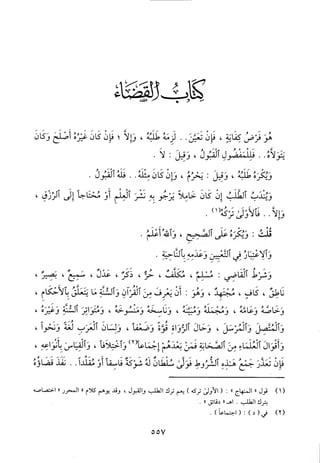 كِتَابُ القَضَاءِ
هُوَ فَرْضُ كِفَايَةٍ ، فَإِنْ تَعَيَّنَ . . لَزِمَهُ طَلَبُهُ ، وَإِلَّا ؛ فَإِنْ كَانَ غَيْرُهُ أَصْلَحَ وَكَانَ
يَتَوَلَّاهُ . . فَلِلْمَفْضُولِ الْقَبُولُ ، وَقِيلَ : لَا .
وَيُكْرَهُ طَلَبُهُ ، وَقِيلَ : يَحْرُمُ ، وَإِنْ كَانَ مِثْلَهُ . . فَلَهُ الْقَبُولُ .
وَيُنْدَبُ الطَّلَبُ إِنْ كَانَ خَامِلاً يَرْجُو بِهِ نَشْرَ الْعِلْمِ أَوْ مُحْتَاجاً إِلَى الرِّزْقِ ،
وَإِلَّا . . فَالأَوْلَىٰ تَرْكُهُ(١) .
قُلْتُ : وَيُكْرَهُ عَلَى الصَّحِيحِ ، وَاللهُ أَعْلَمُ .
وَالِاعْتِبَارُ فِي التَّعَيُّنِ وَعَدَمِهِ بِالنَّاحِيَةِ .
وَشَرْطُ الْقَاضِي : مُسْلِمٌ ، مُكَلَّفٌ ، حُرٌّ ، ذَكَرٌ ، عَدْلٌ ، سَمِيعٌ ، بَصِيرٌ ،
نَاطِقٌ ، كَافٍ ، مُجْتَهِدٌ ، وَهُوَ : أَنْ يَعْرِفَ مِنَ الْقُرْآنِ وَالسُّنَّةِ مَا يَتَعَلَّقُ بِالأَحْكَامِ ،
وَخَاصَّهُ وَعَامَّهُ ، وَمُجْمَلَهُ وَمُبَيَّنَهُ ، وَنَاسِخَهُ وَمَنْسُوخَهُ ، وَمُتَوَاتِرَ السُّنَّةِ وَغَيْرَهُ ،
وَالْمُتَّصِلَ وَالْمُرْسَلَ ، وَحَالَ الرُّوَاةِ قُوَّةً وَضَعْفاً ، وَلِسَانَ الْعَرَبِ لُغَةً وَنَحْواً ،
وَأَقْوَالَ الْعُلَمَاءِ مِنَ الصَّحَابَةِ فَمَنْ بَعْدَهُمْ إِجْمَاعاً(٢) وَاخْتِلَافاً ، وَالْقِيَاسَ بِأَنْوَاعِهِ ،
فَإِنْ تَعَذَّرَ جَمْعُ هٰذِهِ الشُّرُوطِ فَوَلَّىٰ سُلْطَانٌ لَهُ شَوْكَةٌ فَاسِقاً أَوْ مُقَلِّداً . . نَفَذَ قَضَاؤُهُ
(١) قول « المنهاج » : ( الأولىٰ تركه ) يعم ترك الطلب والقبول ، وقد يوهم كلام « المحرر » اختصاصه
بترك الطلب . اهـ « دقائق » .
(٢) في ( د ) : ( اجتماعاً ) .
٥٥٧